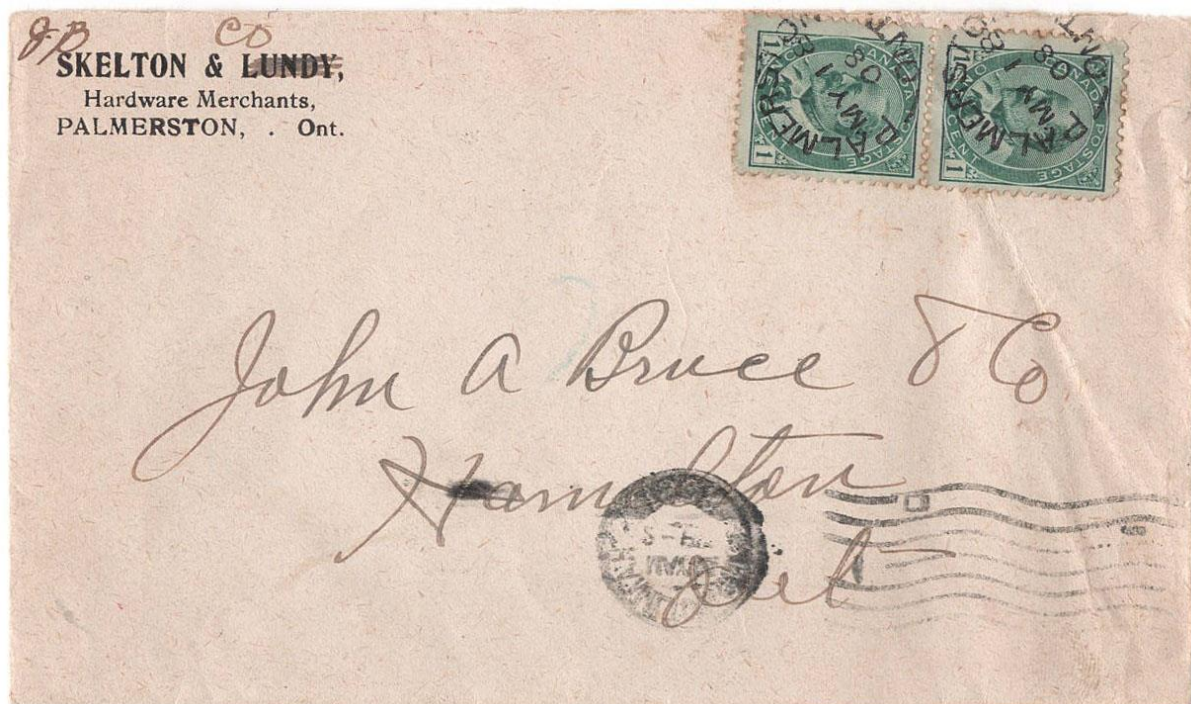 JB
CO
SKELTON & LUNDY,
Hardware Merchants,
PALMERSTON, . Ont.
CANADA POSTAGE
1 ONE CENT 1
PALMERSTON
MY 1
08
ONT
CANADA POSTAGE
1 ONE CENT 1
PALMERSTON
MY 1
08
ONT
John A Bruce & Co
Hamilton
Ont
AM